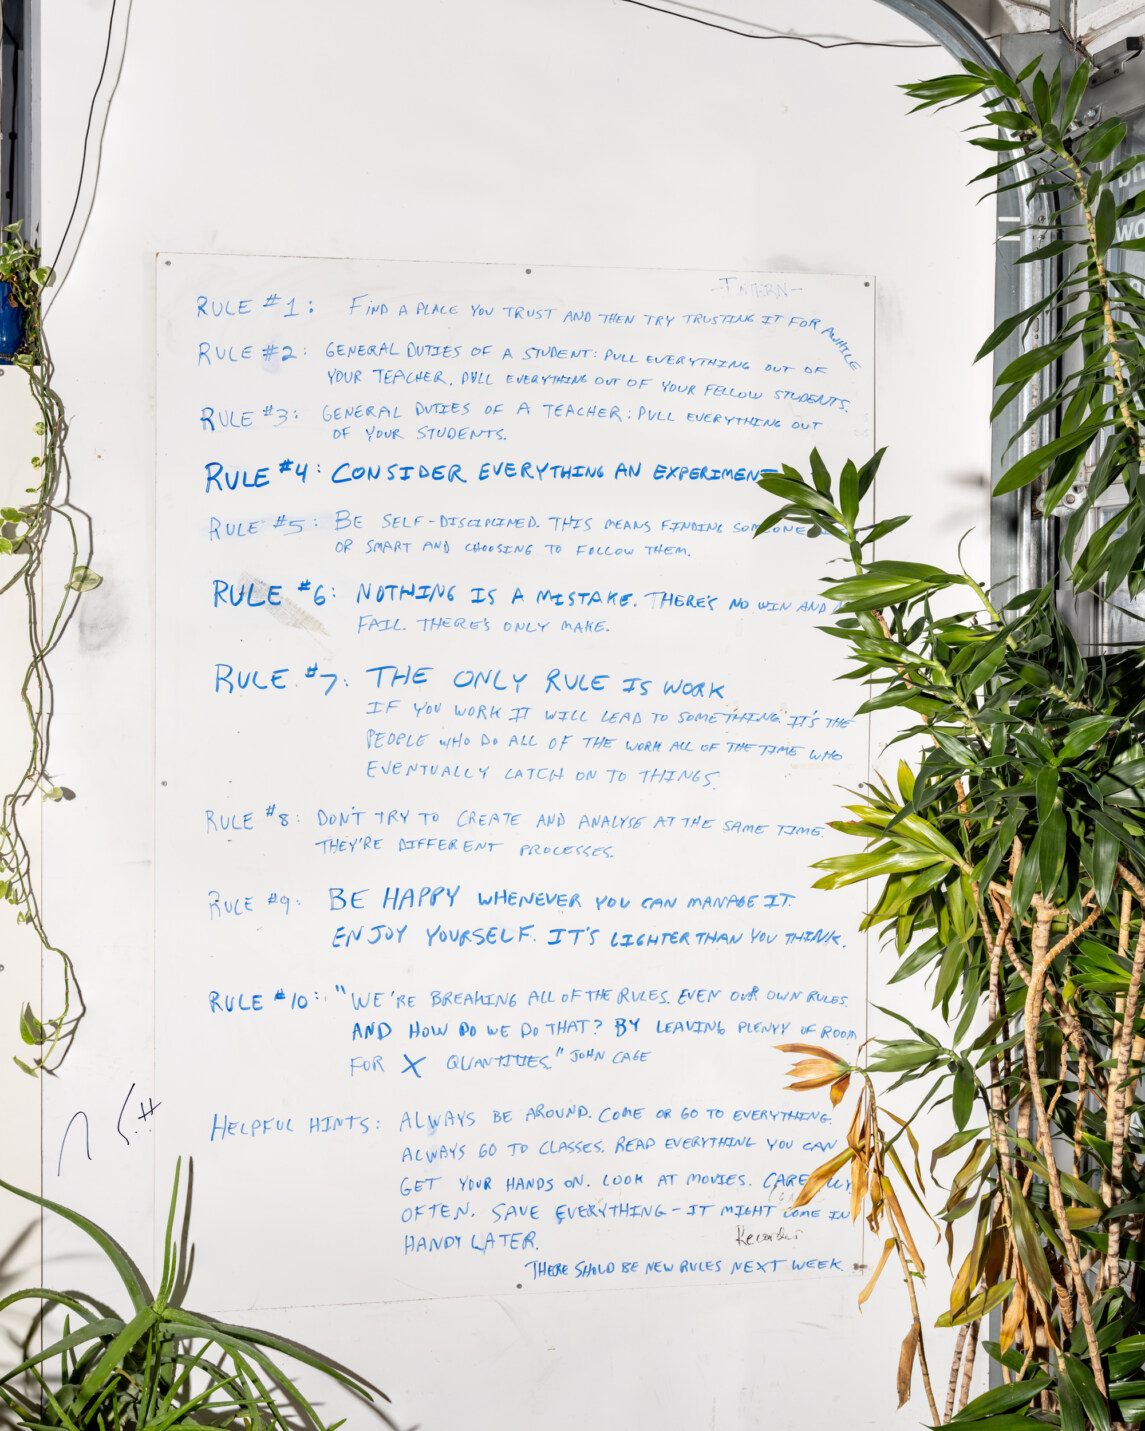 -INTERN-
RULE #1: FIND A PLACE YOU TRUST AND THEN TRY TRUSTING IT FOR AWHILE
RULE #2: GENERAL DUTIES OF A STUDENT: PULL EVERYTHING OUT OF
YOUR TEACHER. PULL EVERYTHING OUT OF YOUR FELLOW STUDENTS.
RULE #3: GENERAL DUTIES OF A TEACHER: PULL EVERYTHING OUT
OF YOUR STUDENTS.
RULE #4: CONSIDER EVERYTHING AN EXPERIMENT
RULE #5: BE SELF-DISCIPLINED. THIS MEANS FINDING SOMEONE
OR SMART AND CHOOSING TO FOLLOW THEM.
RULE #6: NOTHING IS A MISTAKE. THERE'S NO WIN AND
FAIL. THERE'S ONLY MAKE.
RULE #7: THE ONLY RULE IS WORK
IF YOU WORK IT WILL LEAD TO SOMETHING. IT'S THE
PEOPLE WHO DO ALL OF THE WORK ALL OF THE TIME WHO
EVENTUALLY CATCH ON TO THINGS.
RULE #8: DON'T TRY TO CREATE AND ANALYSE AT THE SAME TIME.
THEY'RE DIFFERENT PROCESSES.
RULE #9: BE HAPPY WHENEVER YOU CAN MANAGE IT.
ENJOY YOURSELF. IT'S LIGHTER THAN YOU THINK.
RULE #10: "WE'RE BREAKING ALL OF THE RULES. EVEN OUR OWN RULES.
AND HOW DO WE DO THAT? BY LEAVING PLENTY OF ROOM
FOR X QUANTITIES." JOHN CAGE
HELPFUL HINTS: ALWAYS BE AROUND. COME OR GO TO EVERYTHING.
ALWAYS GO TO CLASSES. READ EVERYTHING YOU CAN
GET YOUR HANDS ON. LOOK AT MOVIES. CAREFULLY
OFTEN. SAVE EVERYTHING - IT MIGHT COME IN
HANDY LATER.
THERE SHOLD BE NEW RULES NEXT WEEK.